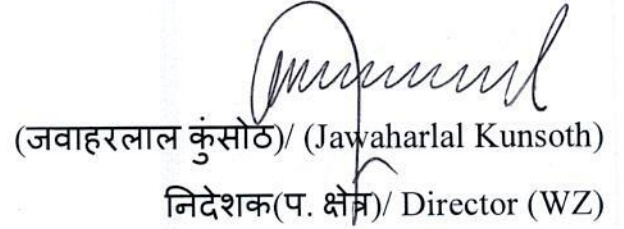 (जवाहरलाल कुंसोठ)/ (Jawaharlal Kunsoth)
निदेशक(प. क्षेत्र)/ Director (WZ)